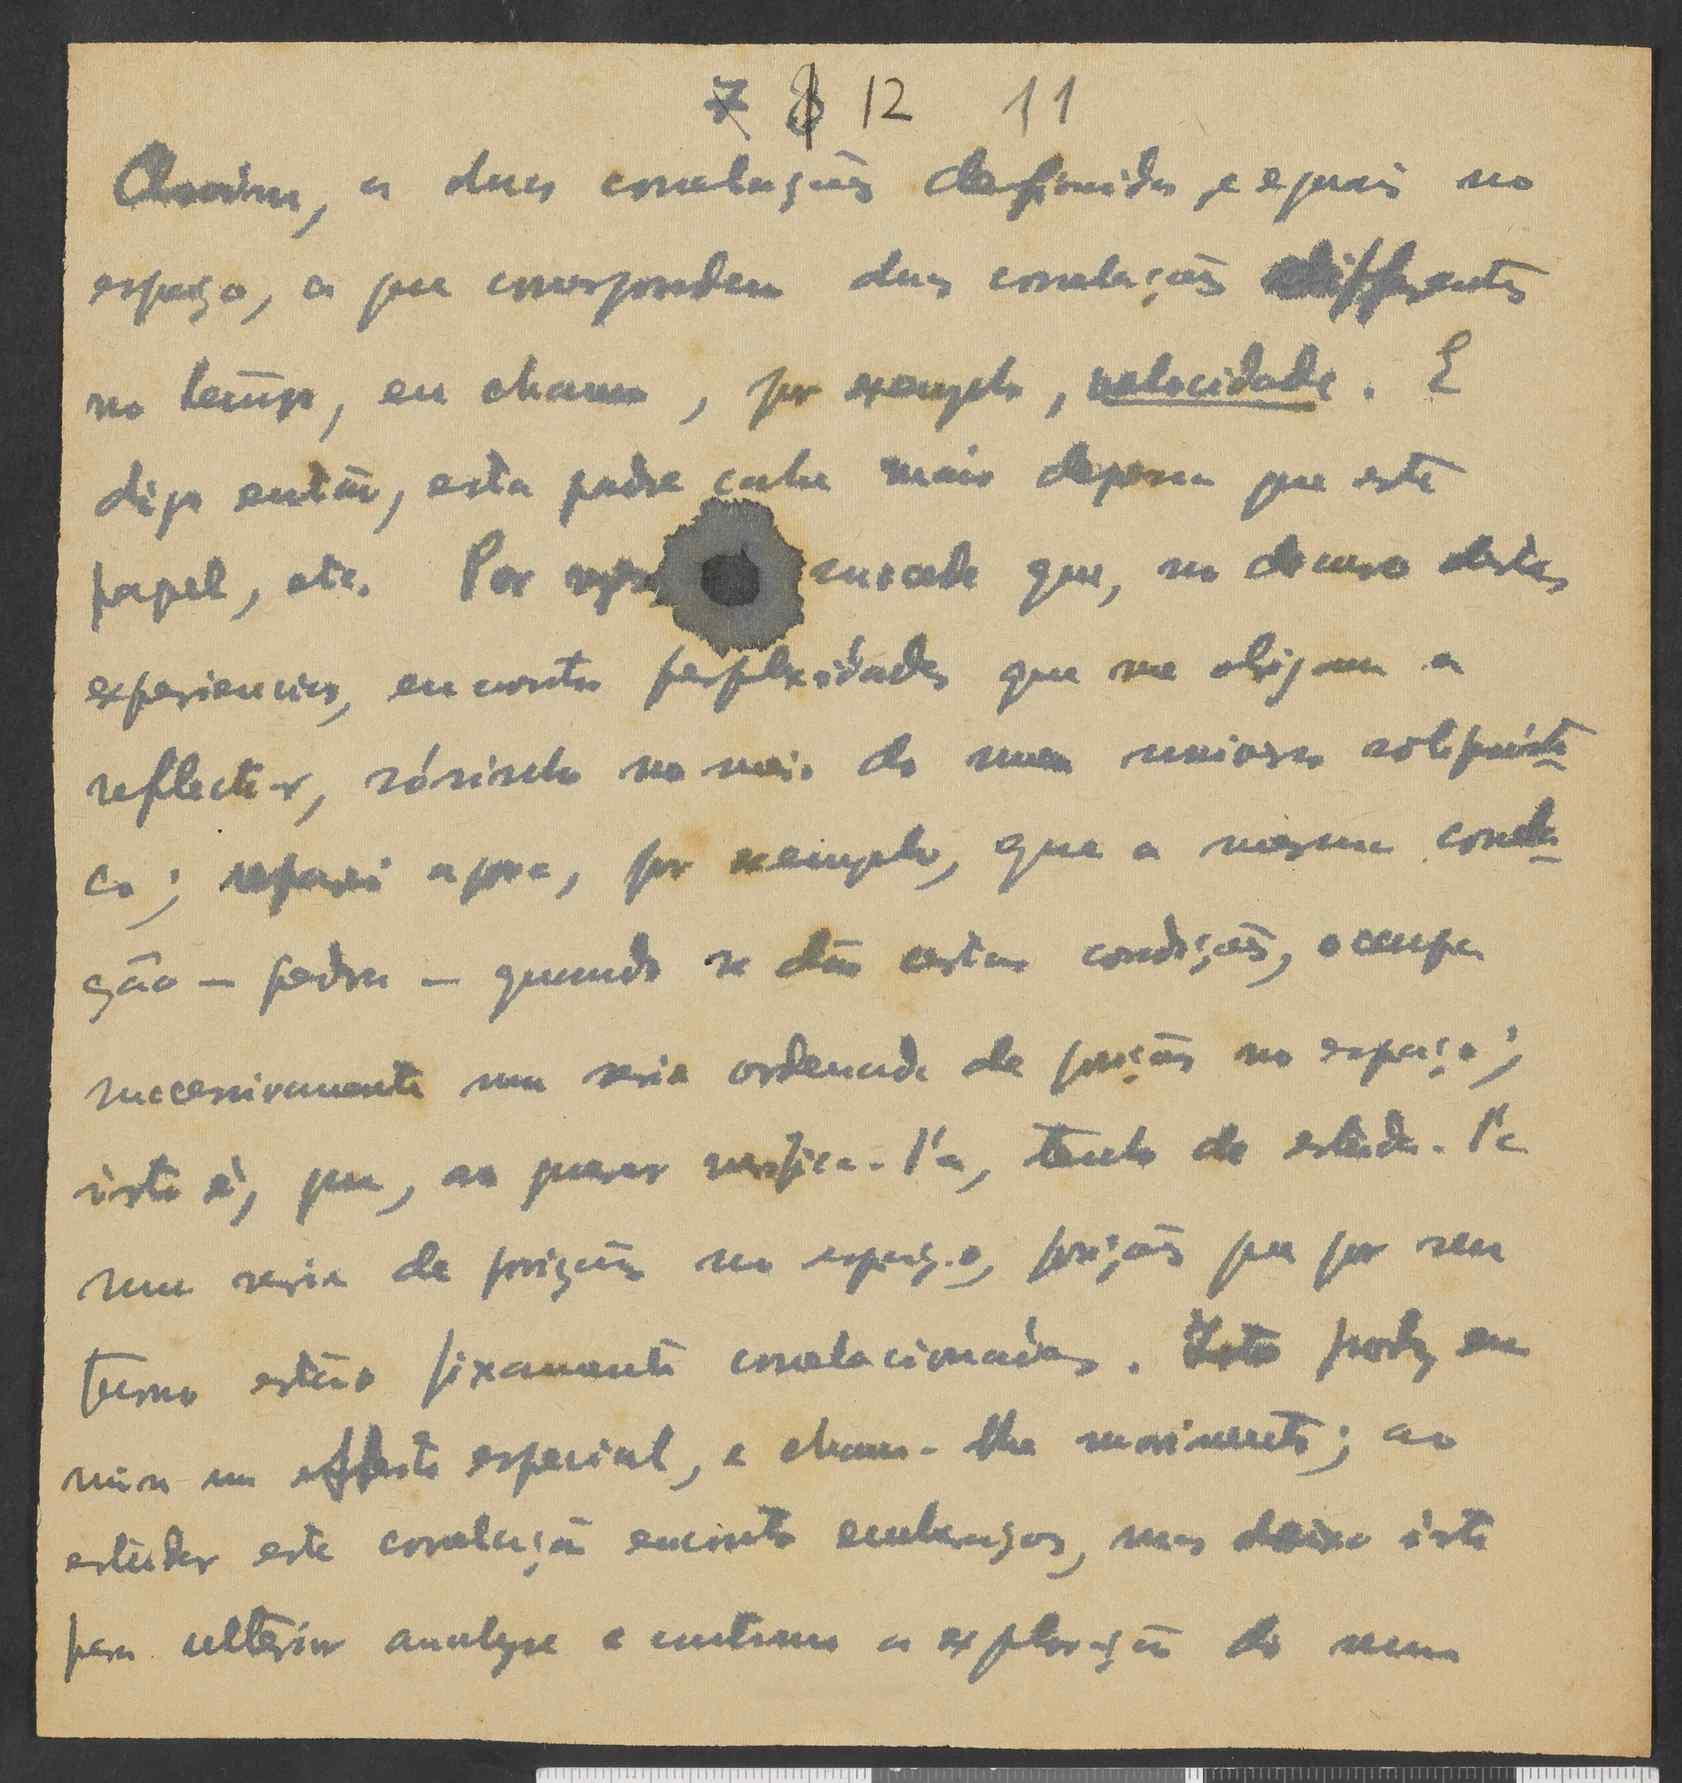 7 8 12 11
Assim, a duas correlações definidas, e eguais no
espaço, a que correspondem duas correlações differentes
no tempo, eu chamo, por exemplo, velocidade. E
digo então, esta pedra cahe mais depressa que este
papel, etc. Por succede que, no decurso destas
experiencias, encontro perplexidades que me obrigam a
reflectir, sósinho no meio do meu universo solipsisti-
co; reparei agora, por exemplo, que a mesma correla-
ção — pedra — quando se dão certas condições, occupa
successivamente uma serie ordenada de posições no espaço;
isto é, que, ao querer verifica-l'a, tenho de estuda-l'a
numa serie de posições no espaço, posições que por seu
turno estão fixamente correlacionadas. Isto produz em
mim um effeito especial, e chamo-lhe movimento; ao
estudar esta correlação encontro embaraços, mas deixo isto
para ulterior analyse e continuo a exploração do meu